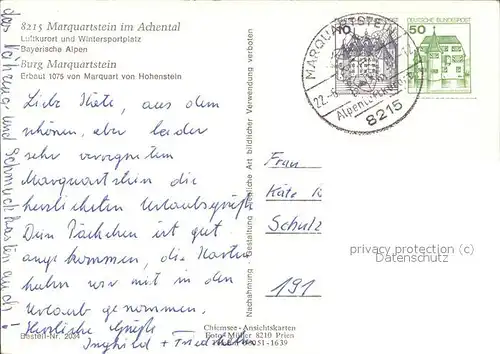 8215 Marquartstein im Achental
Luftkurort und Wintersportplatz
Bayerische Alpen
Burg Marquartstein
Erbaut 1075 von Marquart von Hohenstein
Liebe Käte, aus dem
schönen, aber leider
sehr verregneten
Marquartstein die
herzlichsten Urlaubsgrüße
Dein Päckchen ist gut
angekommen, die Karten
haben wir mit in den
Urlaub genommen.
Herzliche Grüße
Inghild + Friedhelm
das und Schmuckkasten auch!
Bestell-Nr. 2034
Chiemsee-Ansichtskarten
Foto-Müller 8210 Prien
08051-1639
Nachahmung - Gestaltung jegliche Art bildlicher Verwendung verboten
MARQUARTSTEIN
22.-6.
8215
10
DEUTSCHE BUNDESPOST
50
Frau
Käte
Schulz
191
privacy protection (c)
Datenschutz